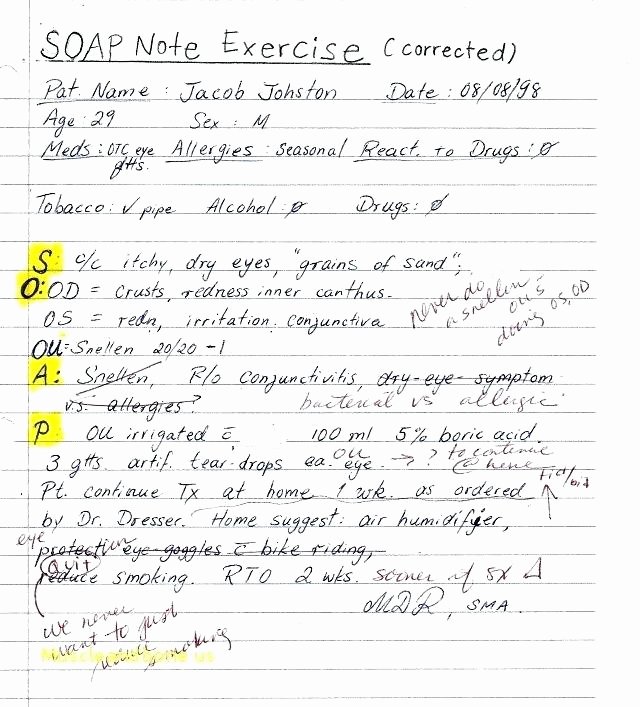 SOAP Note Exercise (corrected)
Pat. Name : Jacob Johston Date : 08/08/98
Age : 29 Sex : M
Meds : OTC eye gtts. Allergies : seasonal React. to Drugs : ∅
Tobacco : √ pipe Alcohol : ∅ Drugs : ∅
S: c/c itchy, dry eyes, "grains of sand";
O: OD = crusts, redness inner canthus.
OS = redn, irritation, conjunctiva
never do
a snellen
OU s̄
doing OS, OD
OU = Snellen 20/20 -1
A: Snellen, R/o conjunctivitis, dry eye symptom
vs. allergies? bacterial vs allergic
P: OU irrigated c̄ 100 ml 5% boric acid.
3 gtts. artif. tear drops ea. eye. OU → ? to continue
@ home Tid/bid
Pt. continue Tx at home 1 wk. as ordered
by Dr. Dresser. Home suggest: air humidifyer,
eye
eye goggles c̄ bike riding,
Quit
reduce smoking. RTO 2 wks. sooner if sx Δ
MDR, SMA.
we never
want to just
reduce smoking